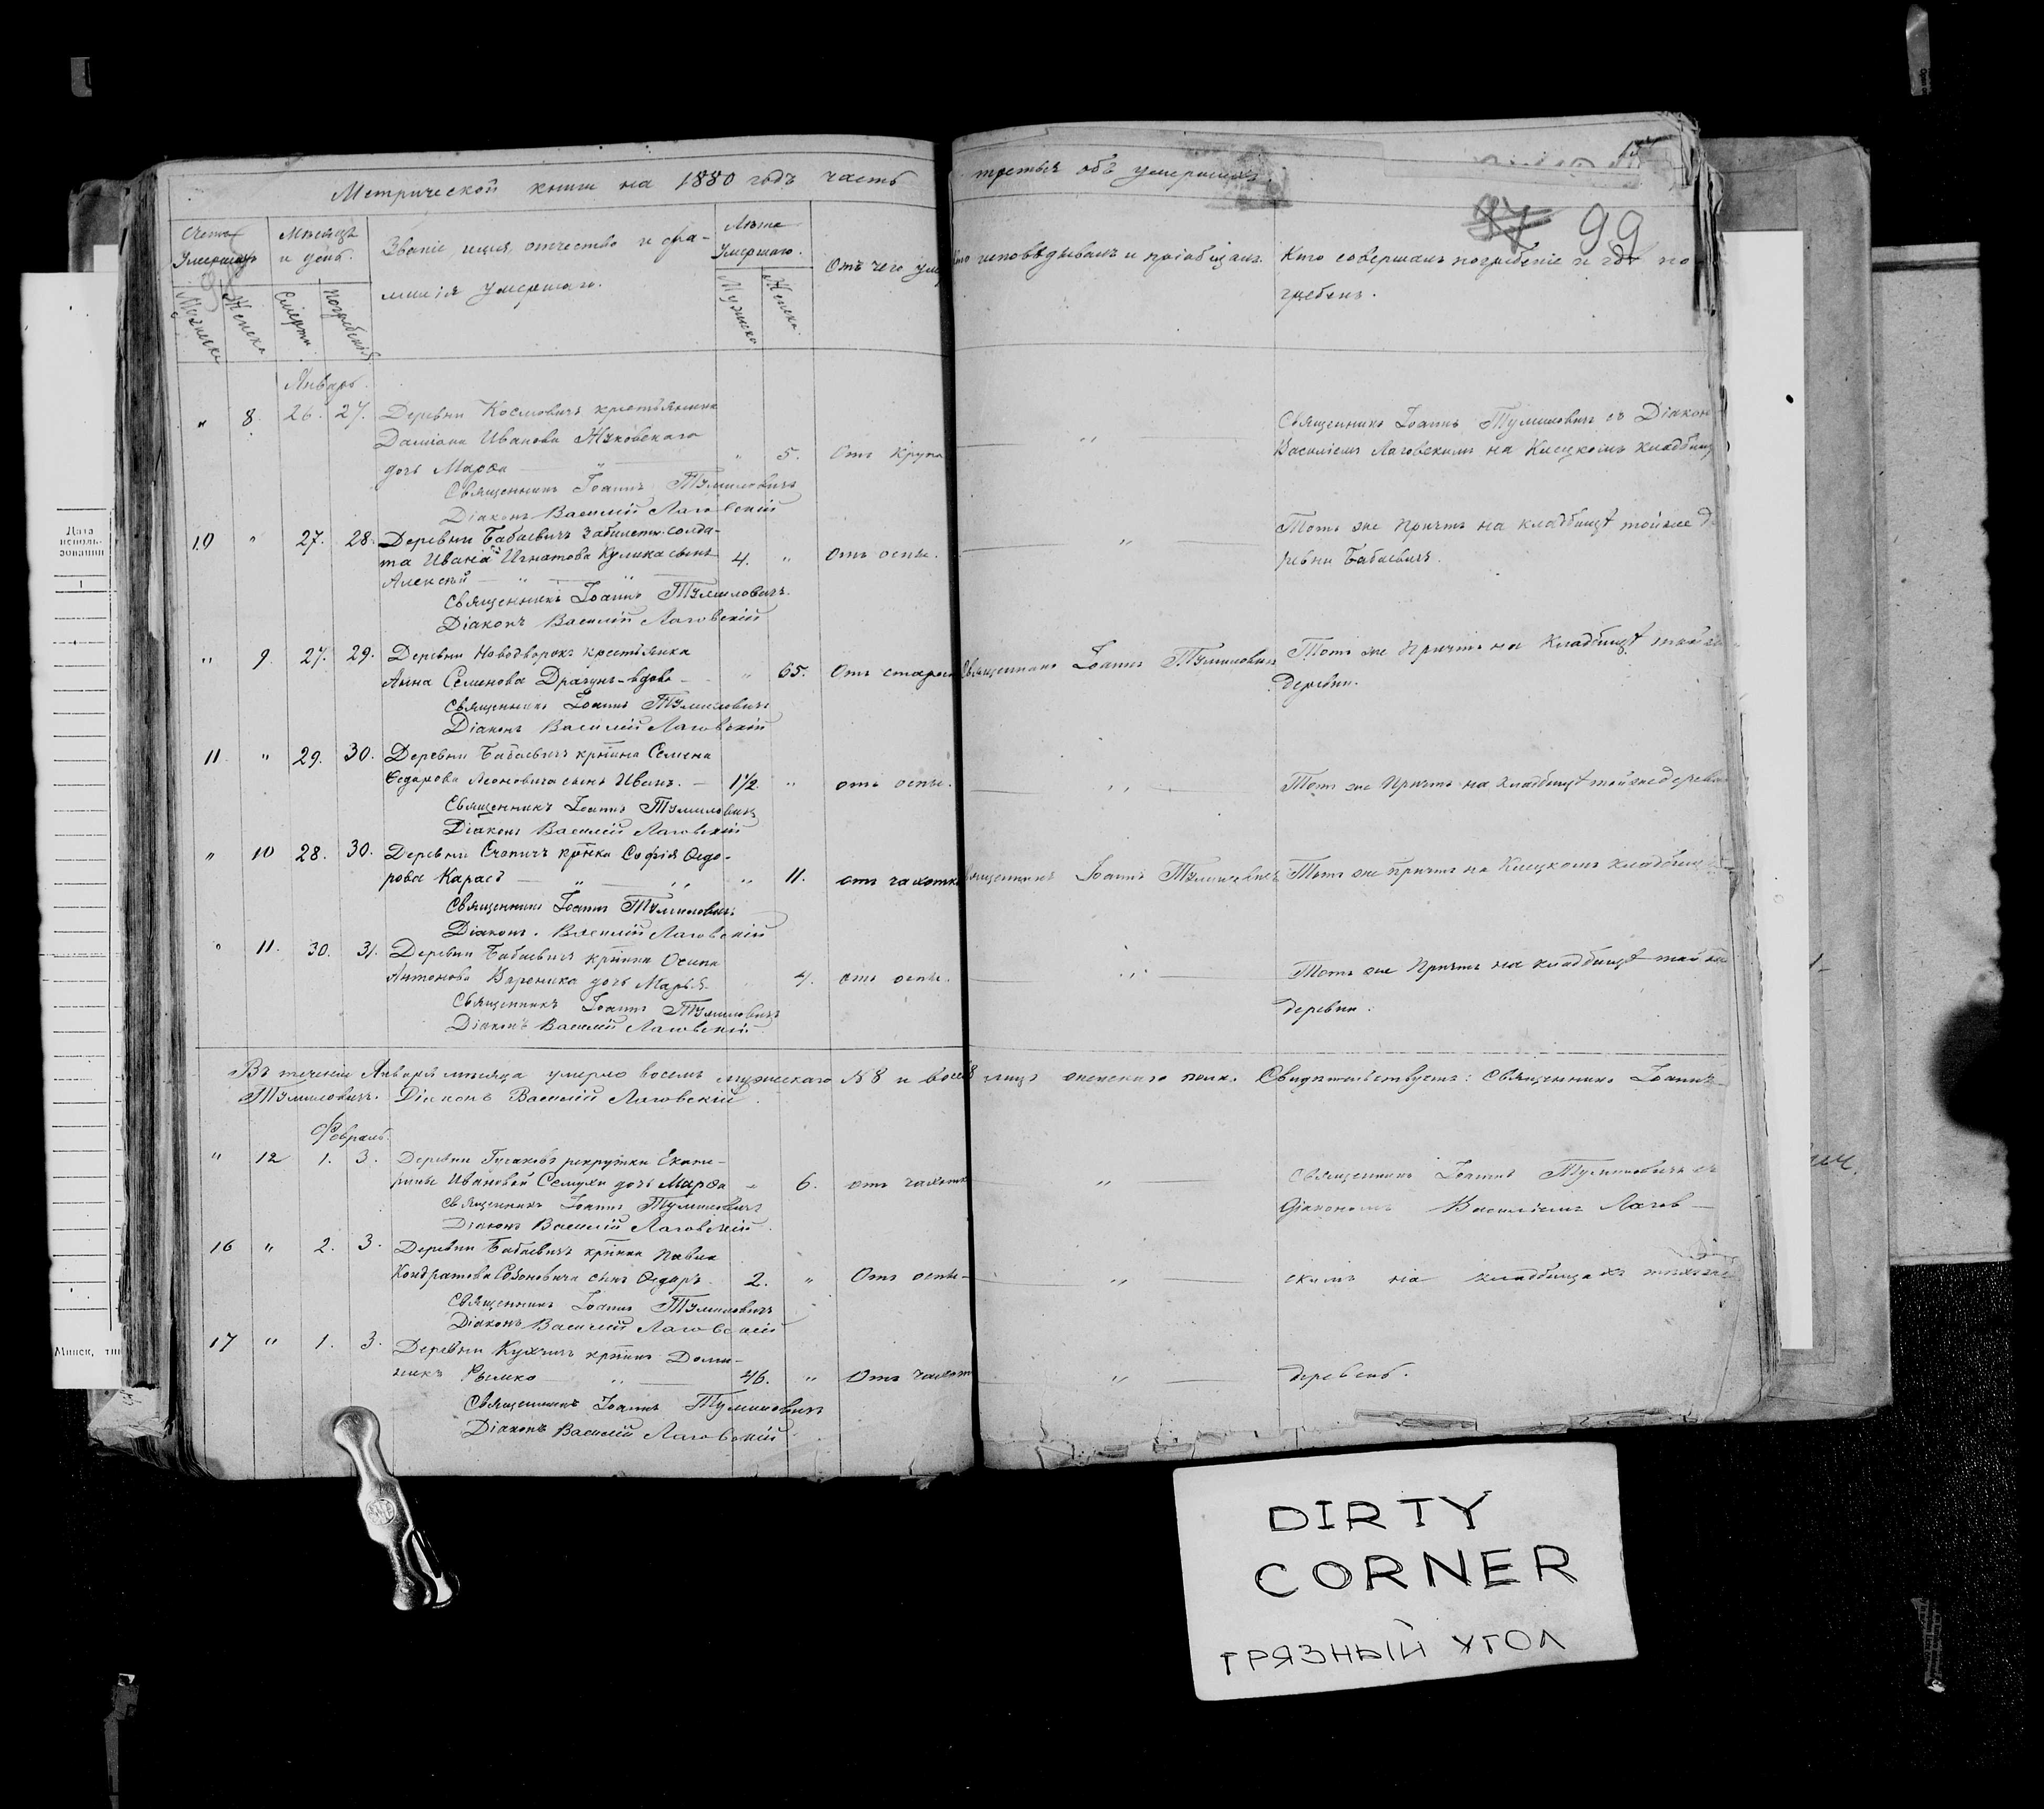 Метрической книги на 1880 годъ часть третья объ умершихъ.
99
Счетъ умершихъ
Мѣсяцъ и день.
Званіе, имя, отчество и фа-
милія умершаго.
Лѣта умершаго.
Отъ чего
исповѣдывалъ и пріобщалъ.
Кто совершалъ погребеніе и гдѣ по
гребенъ.
Мужеска
Женска
Смерти
Погребенія
Мужеска
Женска
Январь.
" 8. 26. 27. Деревни Космовичъ крестьянина
Даміана Иванова Жуковскаго
дочь Марѳа " 5. Отъ крупа
Священникъ Іоаннъ Тумиловичъ съ Діакон
Василіемъ Лаговскимъ на Клецкомъ кладбищ
Священникъ Іоаннъ Тумиловичъ
Діаконъ Василій Лаговскій
10 " 27. 28. Деревни Бабаевичъ забилетн. солда-
та Ивана Игнатова Кулика сынъ 4. " Отъ оспы.
Алексѣй
Тотъ же Причтъ на кладбищѣ тойже де
ревни Бабаевичъ.
Священникъ Іоаннъ Тумиловичъ.
Діаконъ Василій Лаговскій
" 9. 27. 29. Деревни Новодворокъ крестьянка
Анна Семенова Драгунъ - вдова " 65. Отъ старости Священникъ Іоаннъ Тумиловичъ
Тотъ же Причтъ на кладбищѣ той же
деревни.
Священникъ Іоаннъ Тумиловичъ
Діаконъ Василій Лаговскій
11 " 29. 30. Деревни Бабаевичъ крѣтина Семена
Ѳедорова Леоновича сынъ Иванъ. 1½. " отъ оспы.
Тотъ же Причтъ на кладбищѣ тойже деревни
Священникъ Іоаннъ Тумиловичъ
Діаконъ Василій Лаговскій
" 10 28. 30. Деревни крѣнка Софія Ѳедо-
рова Карась " 11. отъ чахотки Священникъ Іоаннъ Тумиловичъ
Тотъ же причтъ на Клецкомъ кладбищѣ
Священникъ Іоаннъ Тумиловичъ
Діаконъ. Василій Лаговскій
" 11. 30. 31. Деревни Бабаевичъ крѣтина Осипа
Антонова дочь Марья. 4. отъ оспы.
Тотъ же Причтъ на кладбищѣ той же
деревни.
Священникъ Іоаннъ Тумиловичъ
Діаконъ Василій Лаговскій
Въ теченіи Января мѣсяца умерло восемь мужескаго № 8 и лицъ женскаго пола. Свидѣтельствуетъ: Священникъ Іоаннъ
Тумиловичъ. Діаконъ Василій Лаговскій.
Февраль.
" 12 1. 3. Деревни Гусаковъ рекрутки Екате-
рины Ивановой Семухи дочь Марѳа " 6. отъ чахотки
Священникъ Іоаннъ Тумиловичъ съ
Діакономъ Василіемъ Лагов-
Священникъ Іоаннъ Тумиловичъ
Діаконъ Василій Лаговскій.
16 " 2. 3. Деревни Бабаевичъ крѣтина Павла
Кондратова Созоновича сынъ Ѳедоръ. 2. " Отъ оспы
скимъ на кладбищахъ тѣхъ же
Священникъ Іоаннъ Тумиловичъ
Діаконъ Василій Лаговскій
17 " 1. 3. Деревни Кухчичъ Доми-
никъ Рымко 46. " Отъ чахот
деревень.
Священникъ Іоаннъ Тумиловичъ
Діаконъ Василій Лаговскій
Дата
исполь-
зования
1
Минск, тип
DIRTY
CORNER
ГРЯЗНЫЙ УГОЛ